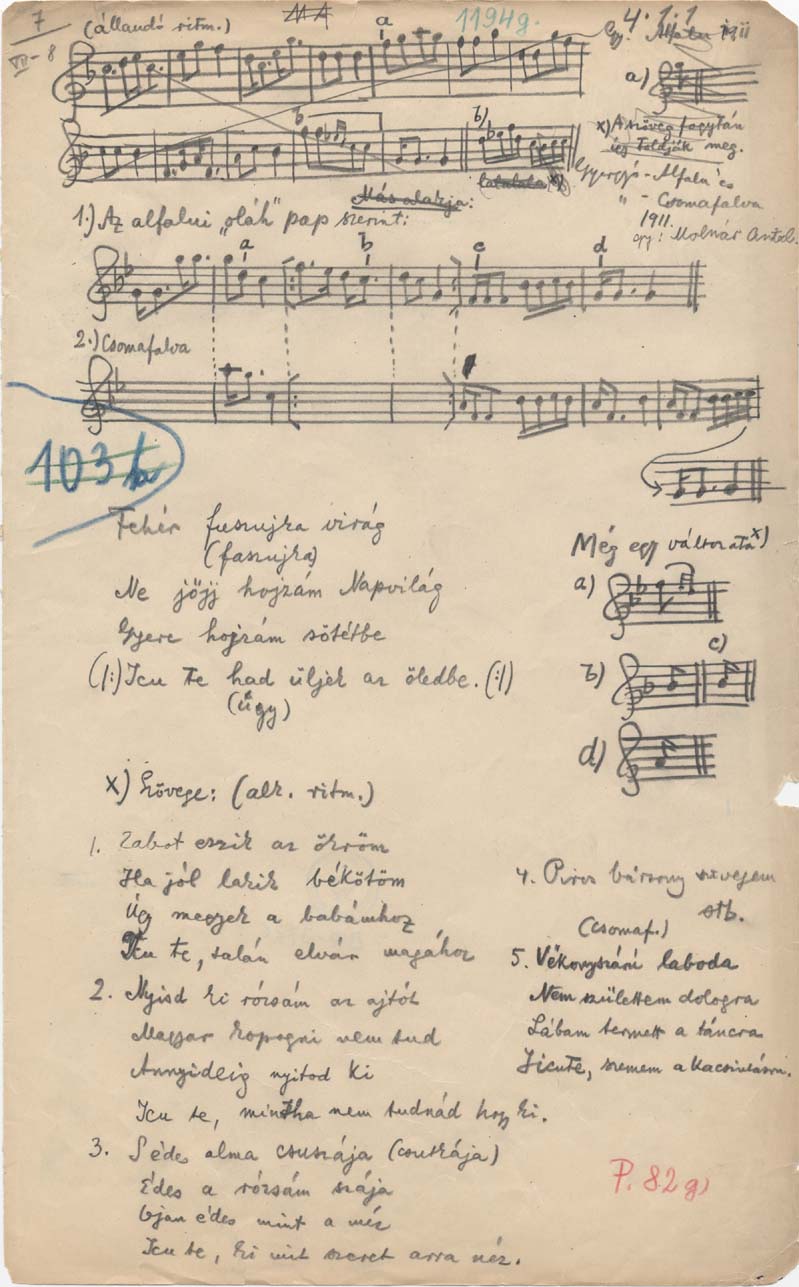 7
VII-8
(állandó ritm.)
MA
1194g.
4. 1. 1
gy. Alfalu 1911
a
a)
b
b)
lalalala x)
x) A szöveg fogytán
így toldják meg.
Gyergyó-Alfalu és
" - Csomafalva
1911.
gy: Molnár Antal.
Más alakja:
1.) Az alfalui „oláh" pap szerint:
a b c d
2.) Csomafalva
103 b
Fehér fuszujka virág
(faszujka)
Ne jőjj hojzám Napvilág
Gyere hojzám sötétbe
(/:) Icu te had üljek az öledbe. (:/)
(úgy)
Még egy változata x)
a)
b) c)
d)
x) Szövege: (alk. ritm.)
1. Zabot eszik az ökröm
Ha jól lakik békötöm
Úgy megyek a babámhoz
Icu te, talán elvár magához
2. Nyisd ki rózsám az ajtót
Magyar kopogni nem tud
Annyideig nyitod ki
Icu te, mintha nem tudnád hogy ki.
3. Sédes alma csuszája (csutkája)
Édes a rózsám szája
Ojan édes mint a méz
Icu te, ki mit szeret arra néz.
4. Piros bársony süvegem
stb.
(Csomaf.)
5. Vékonyszárú laboda
Nem születtem dologra
Lábam termett a táncra
Jicute, szemem a kacsintásra.
P. 82g)